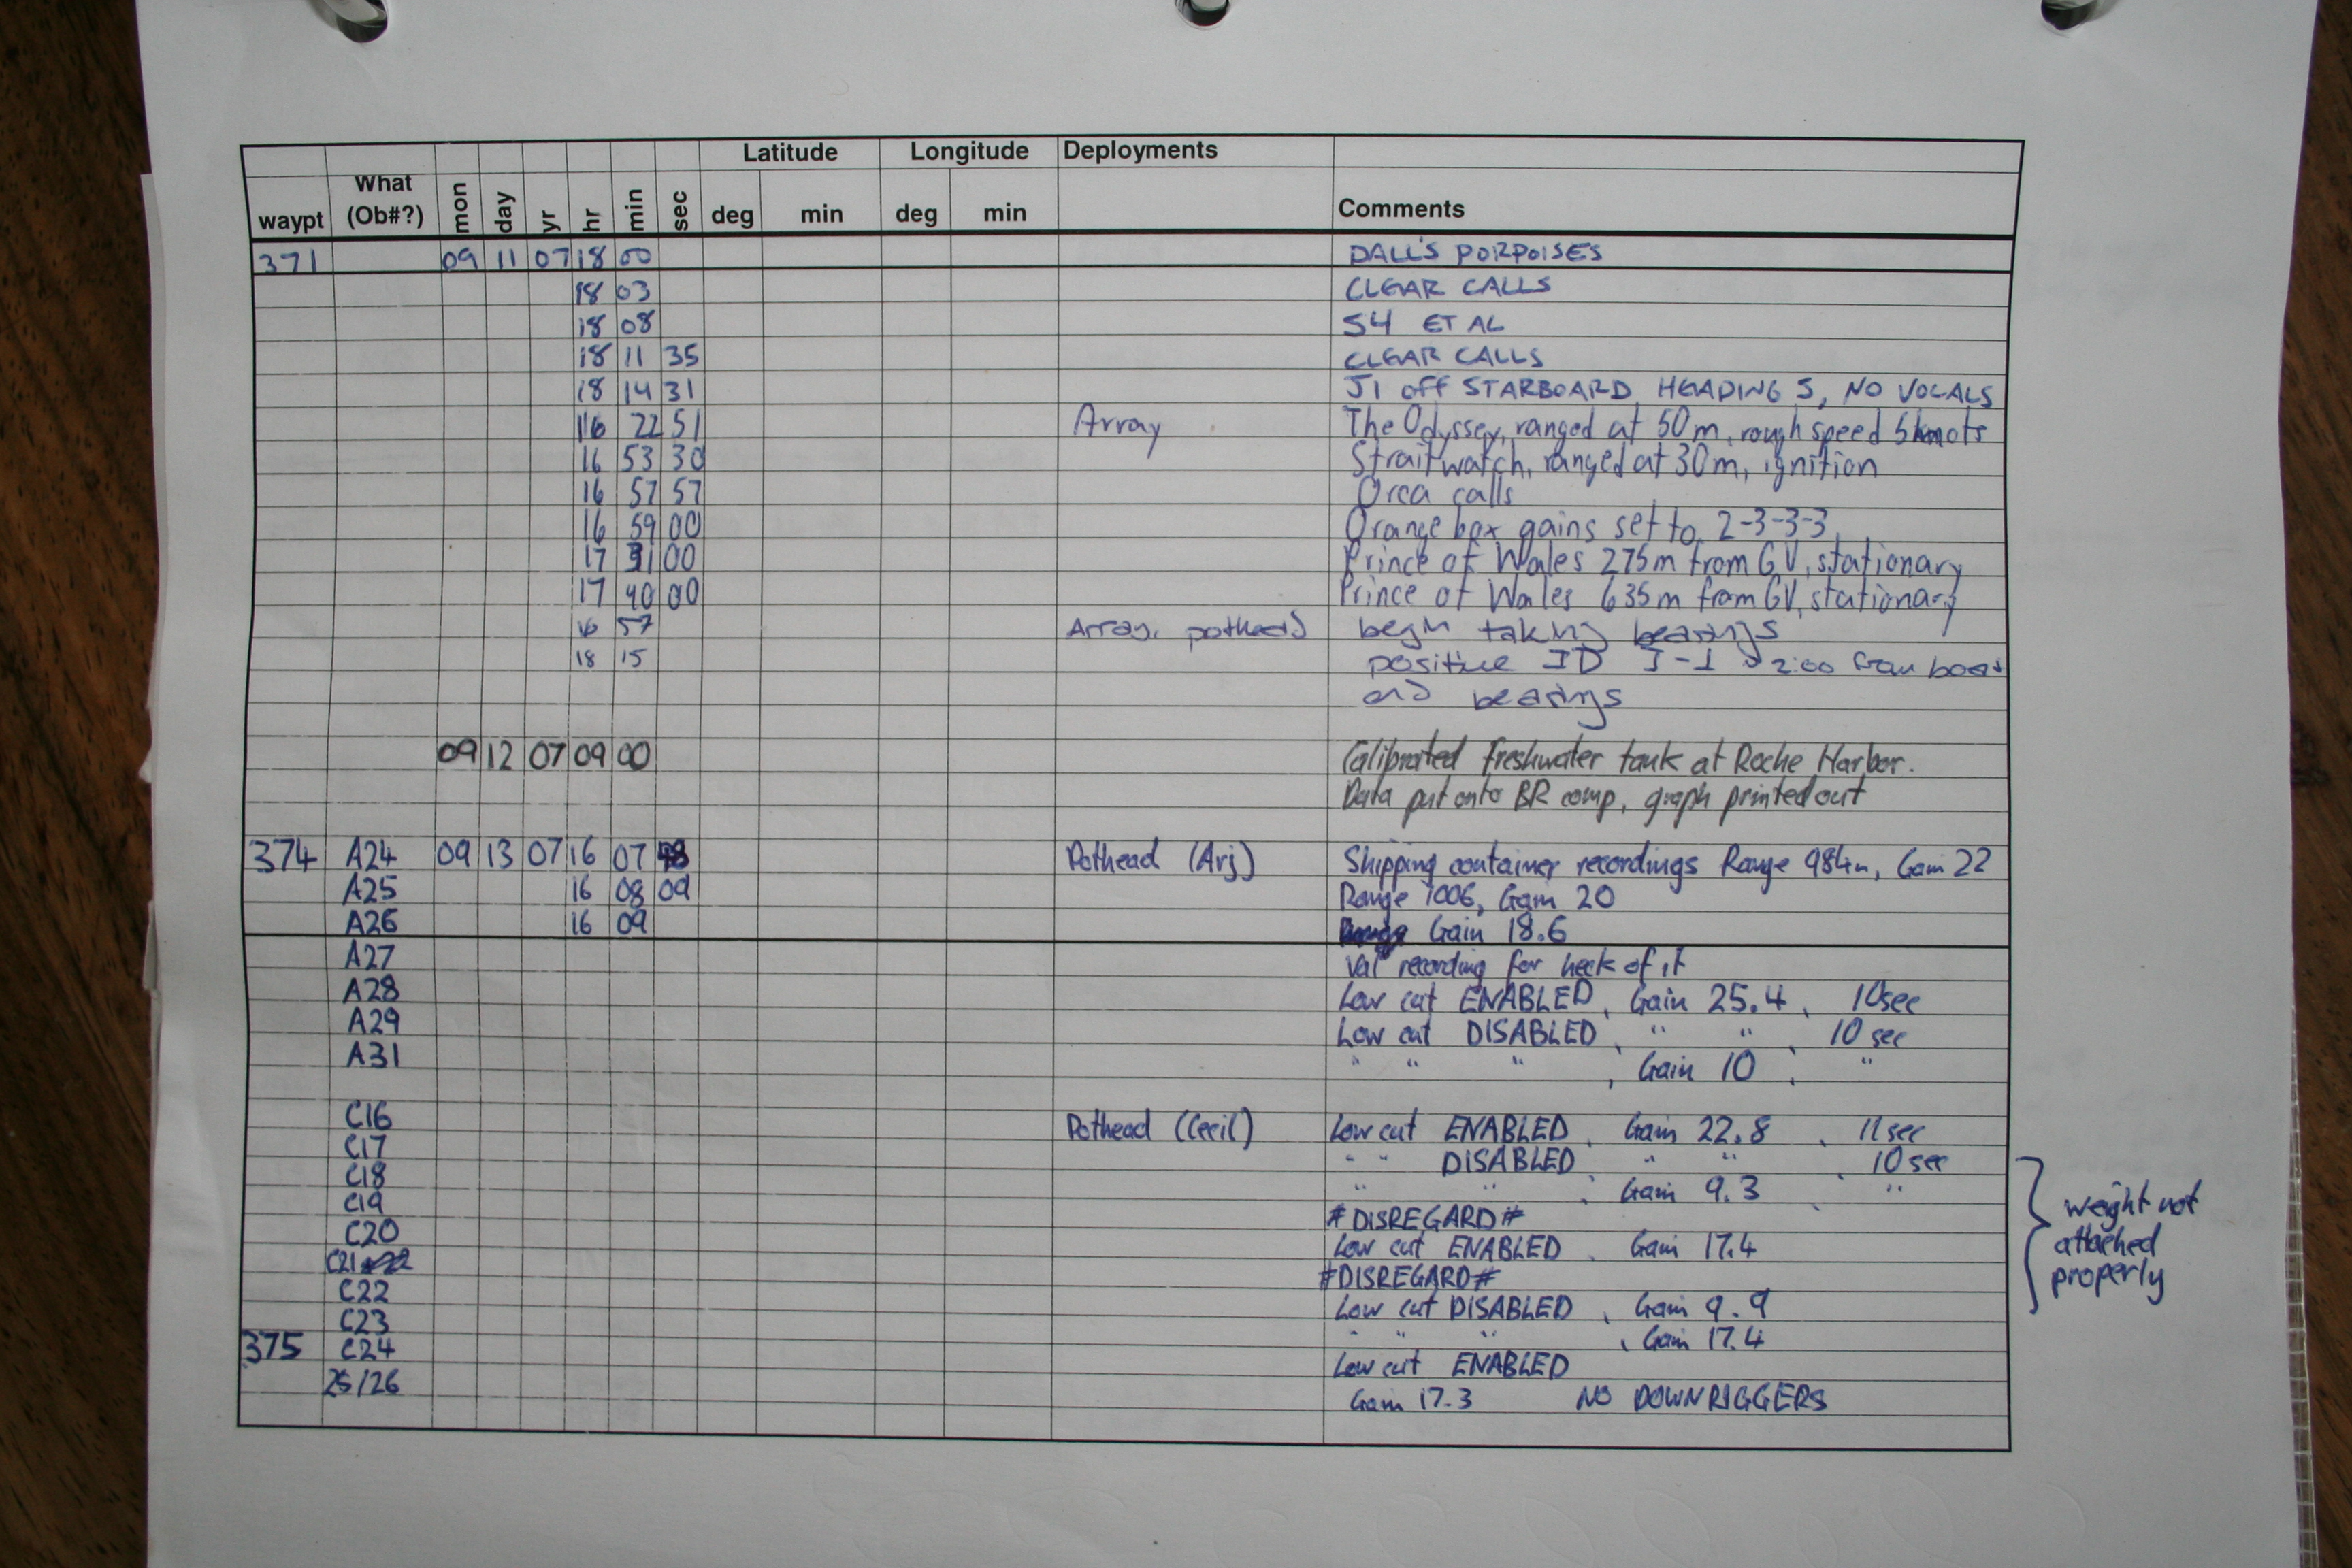 Latitude Longitude Deployments
waypt What (Ob#?) mon day yr hr min sec deg min deg min Comments
371 09 11 07 18 00 DALL'S PORPOISES
18 03 CLEAR CALLS
18 08 S4 ET AL
18 11 35 CLEAR CALLS
18 14 31 J1 off STARBOARD HEADING S, NO VOCALS
16 22 51 Array The Odyssey, ranged at 50m, rough speed 5knots
16 53 30 Straitwatch, ranged at 30m, ignition
16 57 57 Orca calls
16 59 00 Orange box gains set to 2-3-3-3
17 31 00 Prince of Wales 275m from GV, stationary
17 40 00 Prince of Wales 635m from GV, stationary
16 57 Array, pothead begin taking bearings
18 15 positive ID J-1 2:00 from boat
and bearings
09 12 07 09 00 Calibrated freshwater tank at Roche Harbor.
Data put onto BR comp, graph printed out
374 A24 09 13 07 16 07 Pothead (Arj) Shipping container recordings Range 984m, Gain 22
A25 16 08 09 Range 1006, Gain 20
A26 16 09 Gain 18.6
A27 Val recording for heck of it
A28 Low cut ENABLED, Gain 25.4, 10sec
A29 Low cut DISABLED, " ", 10 sec
A31 " " ", Gain 10, "
C16 Pothead (Cecil) Low cut ENABLED, Gain 22.8, 11sec
C17 " " DISABLED, " ", 10 sec
C18 " ", Gain 9.3, "
C19 #DISREGARD#
C20 Low cut ENABLED, Gain 17.4
C21 #DISREGARD#
C22 Low cut DISABLED, Gain 9.9
C23 " " ", Gain 17.4
375 C24 Low cut ENABLED
25/26 Gain 17.3 NO DOWNRIGGERS
weight not
attached
properly